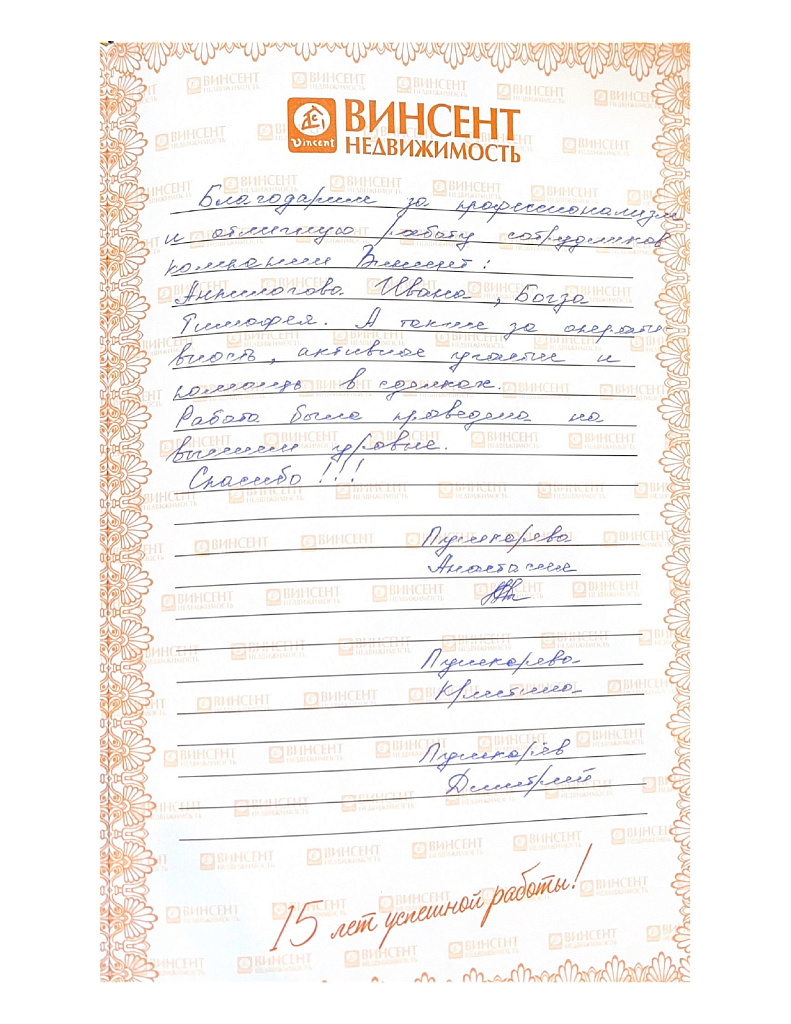 ВИНСЕНТ
НЕДВИЖИМОСТЬ
Vincent
Благодарим за профессионализм
и отличную работу сотрудников
компании Винсент:
Анпилогова Ивана, Богза
Тимофея. А также за операти-
вность, активное участие и
помощь в сделках.
Работа была проведена на
высшем уровне.
Спасибо!!!
Пушкарева
Анастасия
Пушкарева
Кристина
Пушкарёв
Дмитрий
15 лет успешной работы!